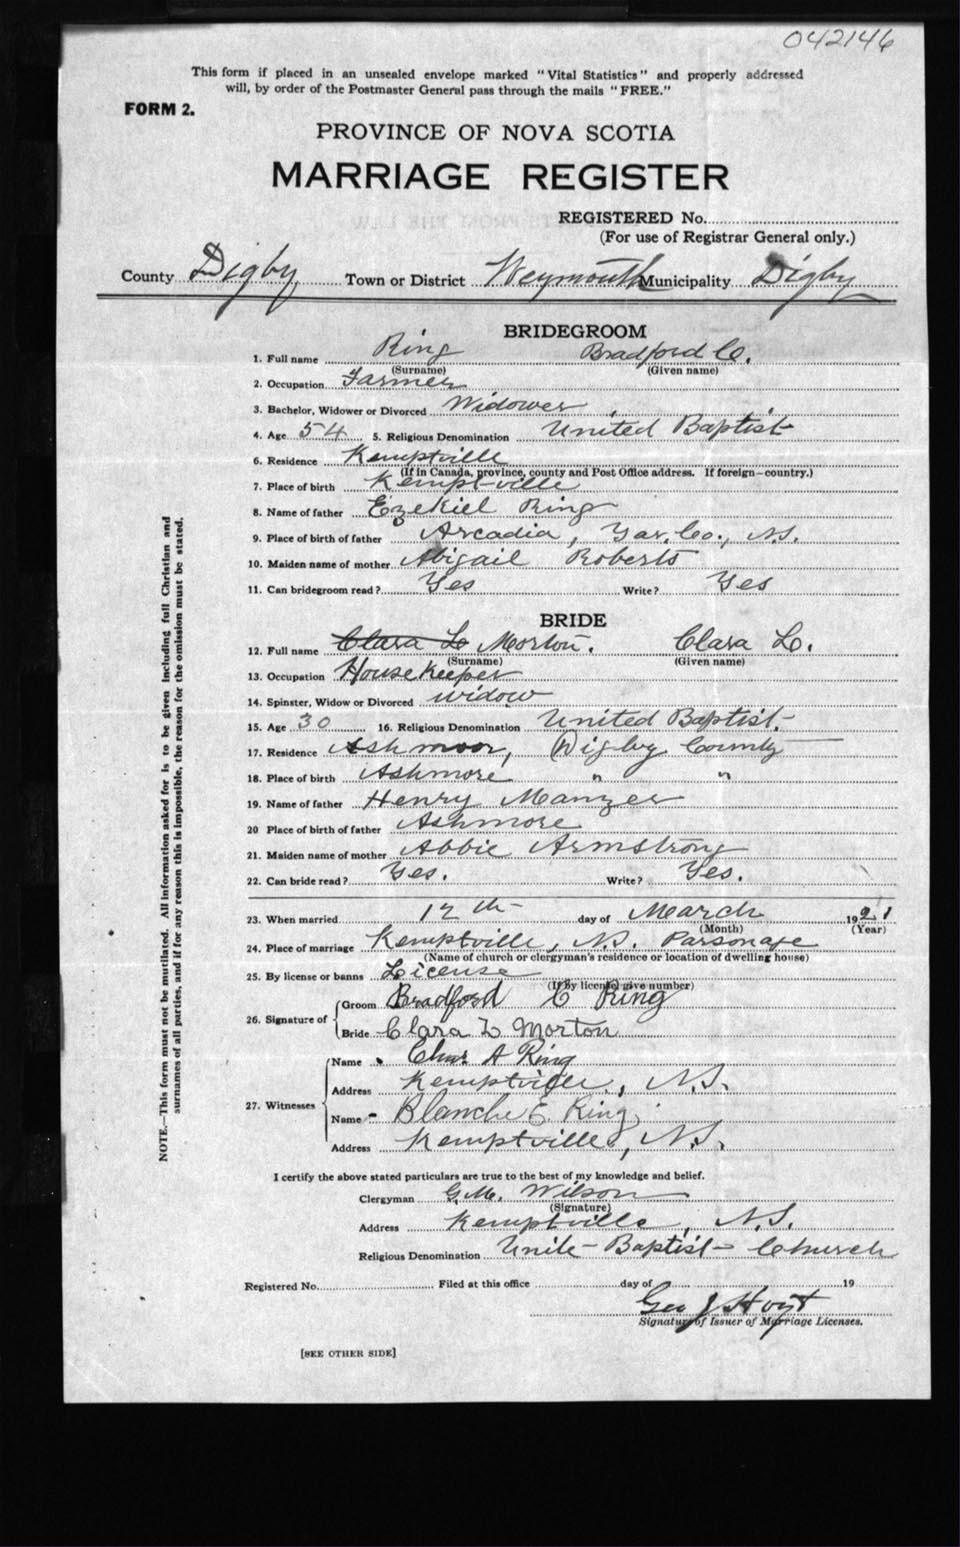 042146
This form if placed in an unsealed envelope marked "Vital Statistics" and properly addressed
will, by order of the Postmaster General pass through the mails "FREE."
FORM 2.
PROVINCE OF NOVA SCOTIA
MARRIAGE REGISTER
REGISTERED No.
(For use of Registrar General only.)
County Digby Town or District Weymouth Municipality Digby
BRIDEGROOM
1. Full name Ring Bradford C.
(Surname) (Given name)
2. Occupation Farmer
3. Bachelor, Widower or Divorced Widower
4. Age 54 5. Religious Denomination United Baptist
6. Residence Kemptville
(If in Canada, province, county and Post Office address. If foreign—country.)
7. Place of birth Kemptville
8. Name of father Ezekiel Ring
9. Place of birth of father Arcadia, Yar. Co., N.S.
10. Maiden name of mother Abigail Roberts
11. Can bridegroom read? Yes Write? Yes
BRIDE
12. Full name Clara L Morton. Clara L.
(Surname) (Given name)
13. Occupation House Keeper
14. Spinster, Widow or Divorced widow
15. Age 30 16. Religious Denomination United Baptist.
17. Residence Ashmoor, Digby County
18. Place of birth Ashmore " "
19. Name of father Henry Manzer
20 Place of birth of father Ashmore
21. Maiden name of mother Abbie Armstrong
22. Can bride read? Yes. Write? Yes.
23. When married 12th day of March 1921
(Month) (Year)
24. Place of marriage Kemptville, N.S. Parsonage
(Name of church or clergyman's residence or location of dwelling house)
25. By license or banns License
(If by license, give number)
26. Signature of Groom Bradford C Ring
Bride Clara L Morton
27. Witnesses Name Chas A Ring
Address Kemptville, N.S.
Name Blanche E. Ring
Address Kemptville, N.S.
I certify the above stated particulars are true to the best of my knowledge and belief.
Clergyman G.M. Wilson
(Signature)
Address Kemptville, N.S.
Religious Denomination Unite- Baptist- Church
Registered No. Filed at this office day of 19
Geo J Hoyt
Signature of Issuer of Marriage Licenses.
[SEE OTHER SIDE]
NOTE.—This form must not be mutilated. All information asked for is to be given including full Christian and
surnames of all parties, and if for any reason this is impossible, the reason for the omission must be stated.